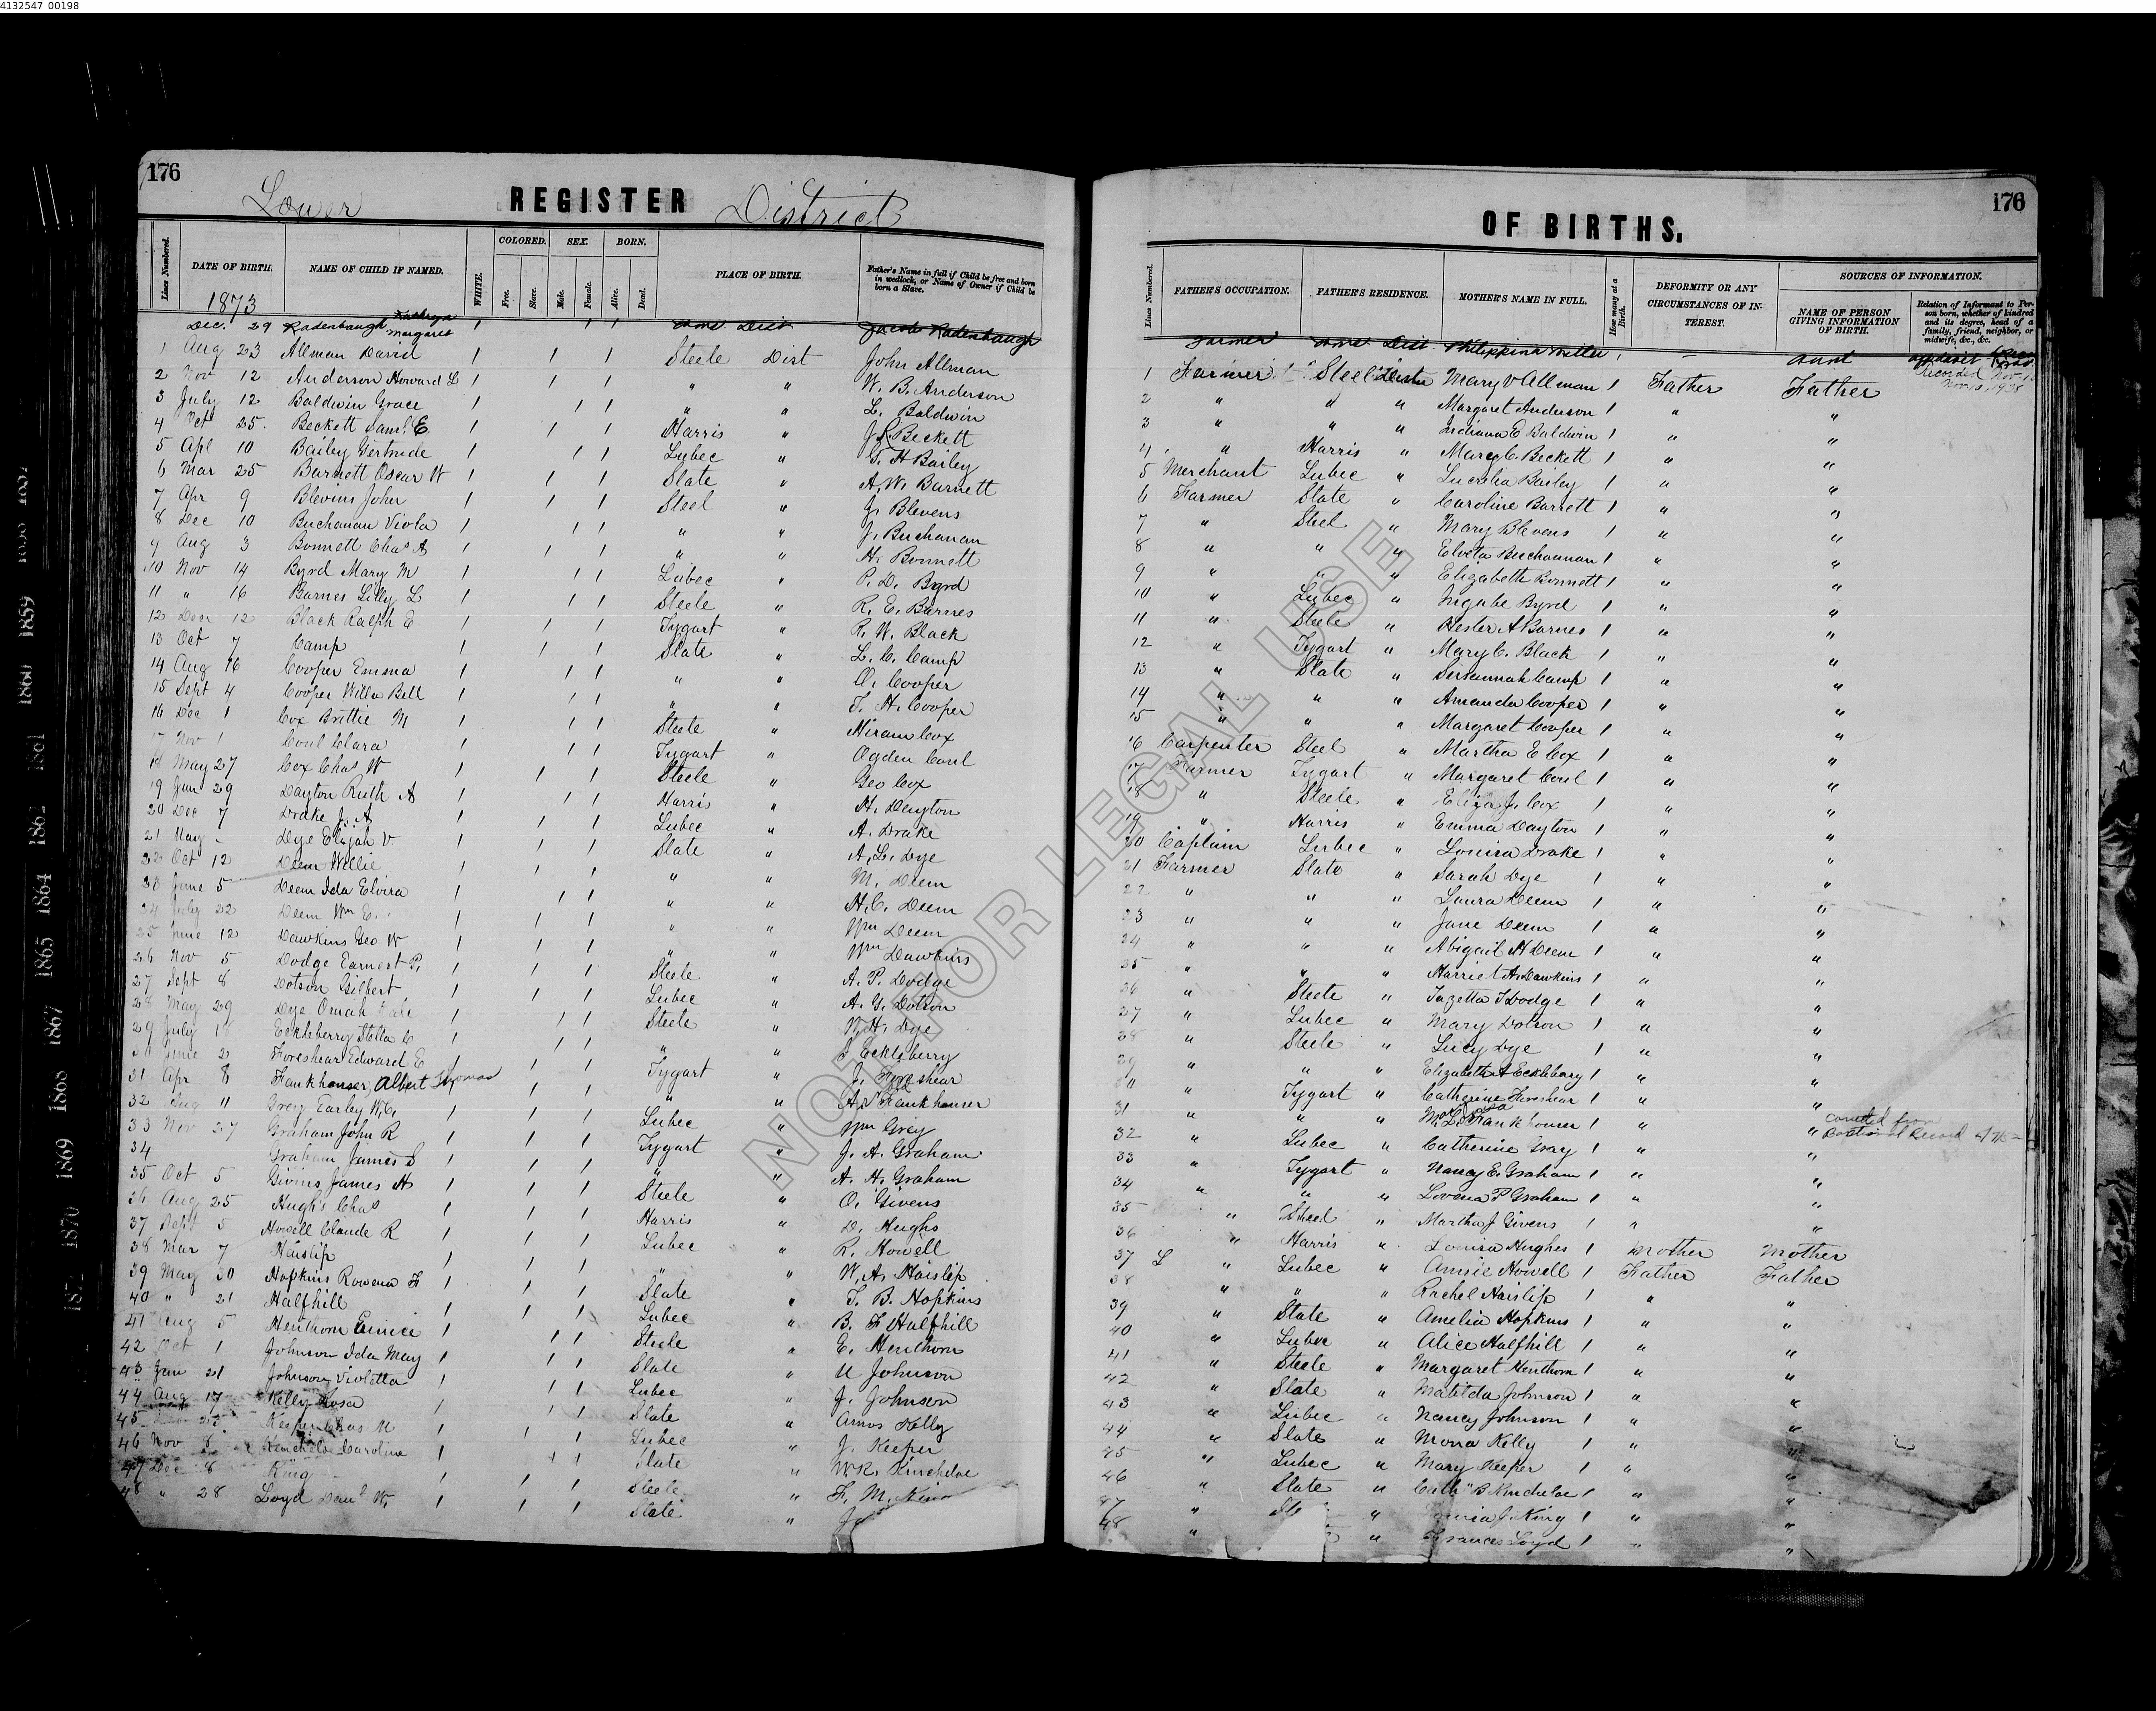 4132547_00198
176
Lower REGISTER District
Lines Numbered. DATE OF BIRTH. NAME OF CHILD IF NAMED. WHITE. COLORED. Free. Slave. SEX. Male. Female. BORN. Alive. Dead. PLACE OF BIRTH. Father's Name in full if Child be free and born in wedlock, or Name of Owner if Child be born a Slave.
1873
Dec. 29 Radenbaugh Kathryn Margaret 1 1 1 Dist Jacob Radenbaugh
1 Aug 23 Allman David 1 1 1 Steele Dist John Allman
2 Nov 12 Anderson Howard L 1 1 1 " " W. B. Anderson
3 July 12 Baldwin Grace 1 1 1 " " L. Baldwin
4 Oct 25. Beckett Saml. E. 1 1 1 Harris " J. R. Beckett
5 Apl 10 Bailey Gertrude 1 1 1 Lubec " G. H Bailey
6 Mar 25 Barnett Oscar W 1 1 1 Slate " A. W. Barnett
7 Apr 9 Blevins John 1 1 1 Steel " J. Blevens
8 Dec 10 Buchanan Viola 1 1 1 " " J. Buchanan
9 Aug 3 Bonnett Chas A 1 1 1 " " H. Bonnett
10 Nov 14 Byrd Mary M 1 1 1 Lubec " P. D. Byrd
11 " 16 Barnes Lilly L 1 1 1 Steele " R. E. Barnes
12 Decr 12 Black Ralph E 1 1 1 Tygart " R. W. Black
13 Oct 7 Camp 1 1 1 Slate " L. C. Camp
14 Aug 16 Cooper Emma 1 1 1 " " O. Cooper
15 Sept 4 Cooper Willa Bell 1 1 1 " " T. H. Cooper
16 Dec 1 Cox Brittie M 1 1 1 Steele " Hiram Cox
17 Nov 1 Coul Clara 1 1 1 Tygart " Ogden Coul
18 May 27 Cox Chas W 1 1 1 Steele " Geo Cox
19 Jun 29 Dayton Ruth A 1 1 1 Harris " H. Dayton
20 Dec 7 Drake J. A 1 1 1 Lubec " A. Drake
21 May - Dye Elijah V. 1 1 1 Slate " A. L. Dye
22 Oct 12 Deem Willie 1 1 1 " " M. Deem
23 June 5 Deem Ida Elvira 1 1 1 " " H. C. Deem
24 July 22 Deem Wm E. 1 1 1 " " Wm Deem
25 June 12 Dawkins Geo W 1 1 1 " " Wm Dawkins
26 Nov 5 Dodge Earnest P. 1 1 1 Steele " A. P. Dodge
27 Sept 8 Dotson Gilbert 1 1 1 Lubec " A. G. Dotson
28 May 29 Dye Omah 1 1 1 Steele " W. H. Dye
29 July Eckleberry Stella C 1 1 1 " " S Eckleberry
30 June 2 Foreshear Edward E 1 1 1 Tygart " J. Foreshear
31 Apr 8 Fankhouser Albert Thomas 1 1 1 " " Fankhouser
32 Aug 11 Grey Earley W. C. 1 1 1 Lubec " Wm Grey
33 Nov 27 Graham John R 1 1 1 Tygart " J. A. Graham
34 Graham James S 1 1 1 " " A. H. Graham
35 Oct 5 Givins James A 1 1 1 Steele " O. Givens
36 Aug 25 Hugh's Chas 1 1 1 Harris " D. Hughs
37 Sept 5 Howell Claude R 1 1 1 Lubec " R. Howell
38 Mar 7 Haislip 1 1 1 " " W. A. Haislip
39 May 30 Hopkins Rowena F 1 1 1 Slate " T. B. Hopkins
40 " 21 Halfhill 1 1 1 Lubec " B. F Halfhill
41 Aug 5 Henthorn Eunice 1 1 1 Steele " E. Henthorn
42 Oct 1 Johnson Ida May 1 1 1 Slate " U Johnson
43 Jan 21 Johnson Violetta 1 1 1 Lubec " J. Johnson
44 Aug 17 Kelly Rosa 1 1 1 Slate " Amos Kelly
45 Keeper Chas M 1 1 1 Lubec " J. Keeper
46 Nov 8 Kincheloe Caroline 1 1 1 Slate " W. R. Kincheloe
47 Dec 8 King 1 1 Steele " F. M. King
48 " 28 Loyd Danl W. 1 1 1 Slate "
176
OF BIRTHS.
Lines Numbered. FATHER'S OCCUPATION. FATHER'S RESIDENCE. MOTHER'S NAME IN FULL. How many at a Birth. DEFORMITY OR ANY CIRCUMSTANCES OF INTEREST. SOURCES OF INFORMATION. NAME OF PERSON GIVING INFORMATION OF BIRTH. Relation of Informant to Person born, whether of kindred and its degree, head of a family, friend, neighbor, or midwife, &c., &c.
Farmer Dist. Philippina Miller 1 - Aunt
1 Farmer Steel Mary V Allman 1 Father Father
2 " " " Margaret Anderson 1 " "
3 " " " Indiana E Baldwin 1 " "
4 " Harris " Mary C. Beckett 1 " "
5 Merchant Lubec " Lucretia Bailey 1 " "
6 Farmer Slate " Caroline Barrett 1 " "
7 " Steel " Mary Blevens 1 " "
8 " " " Elveta Buchannan 1 " "
9 " " " Elizabeth Bonnett 1 " "
10 " Lubec " Byrd 1 " "
11 " Steele " Hester A Barnes 1 " "
12 " Tygart " Mary C. Black 1 " "
13 " Slate " Susannah Camp 1 " "
14 " " " Amanda Cooper 1 " "
15 " " " Margaret Cooper 1 " "
16 Carpenter Steel " Martha E Cox 1 " "
17 Farmer Tygart " Margaret Coul 1 " "
18 " Steele " Eliza J. Cox 1 " "
19 " Harris " Emma Dayton 1 " "
20 Captain Lubec " Louisa Drake 1 " "
21 Farmer Slate " Sarah Dye 1 " "
22 " " " Laura Deem 1 " "
23 " " " Jane Deem 1 " "
24 " " " Abigail H Deem 1 " "
25 " " " Harriet A. Dawkins 1 " "
26 " Steele " Tazetta T Dodge 1 " "
27 " Lubec " Mary Dotson 1 " "
28 " Steele " Lucy Dye 1 " "
29 " " " Elizabeth A Eckleberry 1 " "
30 " Tygart " Catherine Foreshear 1 " "
31 " " " Fankhouser 1 " "
32 " Lubec " Catherine Gray 1 " "
33 " Tygart " Nancy E. Graham 1 " "
34 " " " Lovena P Graham 1 " "
35 " Steel " Martha J Givens 1 " "
36 " Harris " Louisa Hughes 1 Mother Mother
37 L " Lubec " Annie Howell 1 Father Father
38 " " " Rachel Haislip 1 " "
39 " Slate " Amelia Hopkins 1 " "
40 " Lubec " Alice Halfhill 1 " "
41 " Steele " Margaret Henthorn 1 " "
42 " Slate " Matilda Johnson 1 " "
43 " Lubec " Nancy Johnson 1 " "
44 " Slate " Mona Kelly 1 " "
45 " Lubec " Mary Keeper 1 " "
46 " Slate " Cath B Kincheloe 1 " "
47 " St " J. King 1 " "
48 " " Frances Loyd 1 " "
NOT FOR LEGAL USE
1859
1860
1861
1862
1864
1865
1867
1868
1869
1870